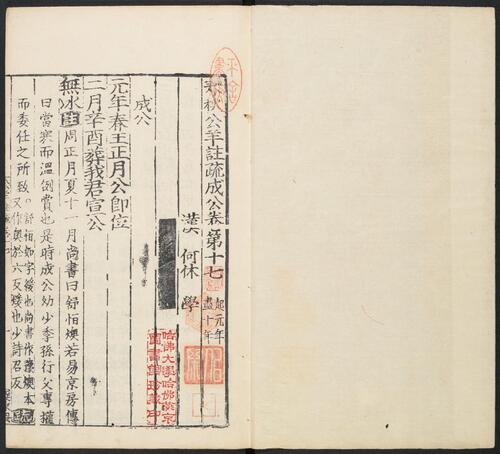 春秋公羊註疏成公卷第十七
起元年
盡十年
漢 何休 學
成公
元年春王正月公卽位
二月辛酉葬我君宣公
無冰
周正月夏十一月尚書曰舒恒燠若易京房傳
曰當寒而溫倒賞也是時成公幼少季孫行父專權
而委任之所致
舒恒如字緩也尚書作豫燠本
又作奧於六反煖也少詩召反
哈佛大學哈佛燕京
圖書館珍藏印